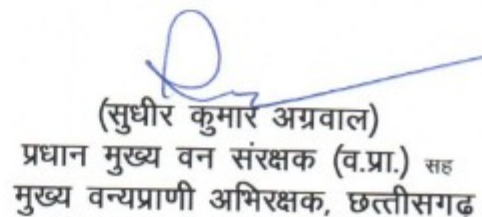 (सुधीर कुमार अग्रवाल)
प्रधान मुख्य वन संरक्षक (व.प्रा.) सह
मुख्य वन्यप्राणी अभिरक्षक, छत्तीसगढ़